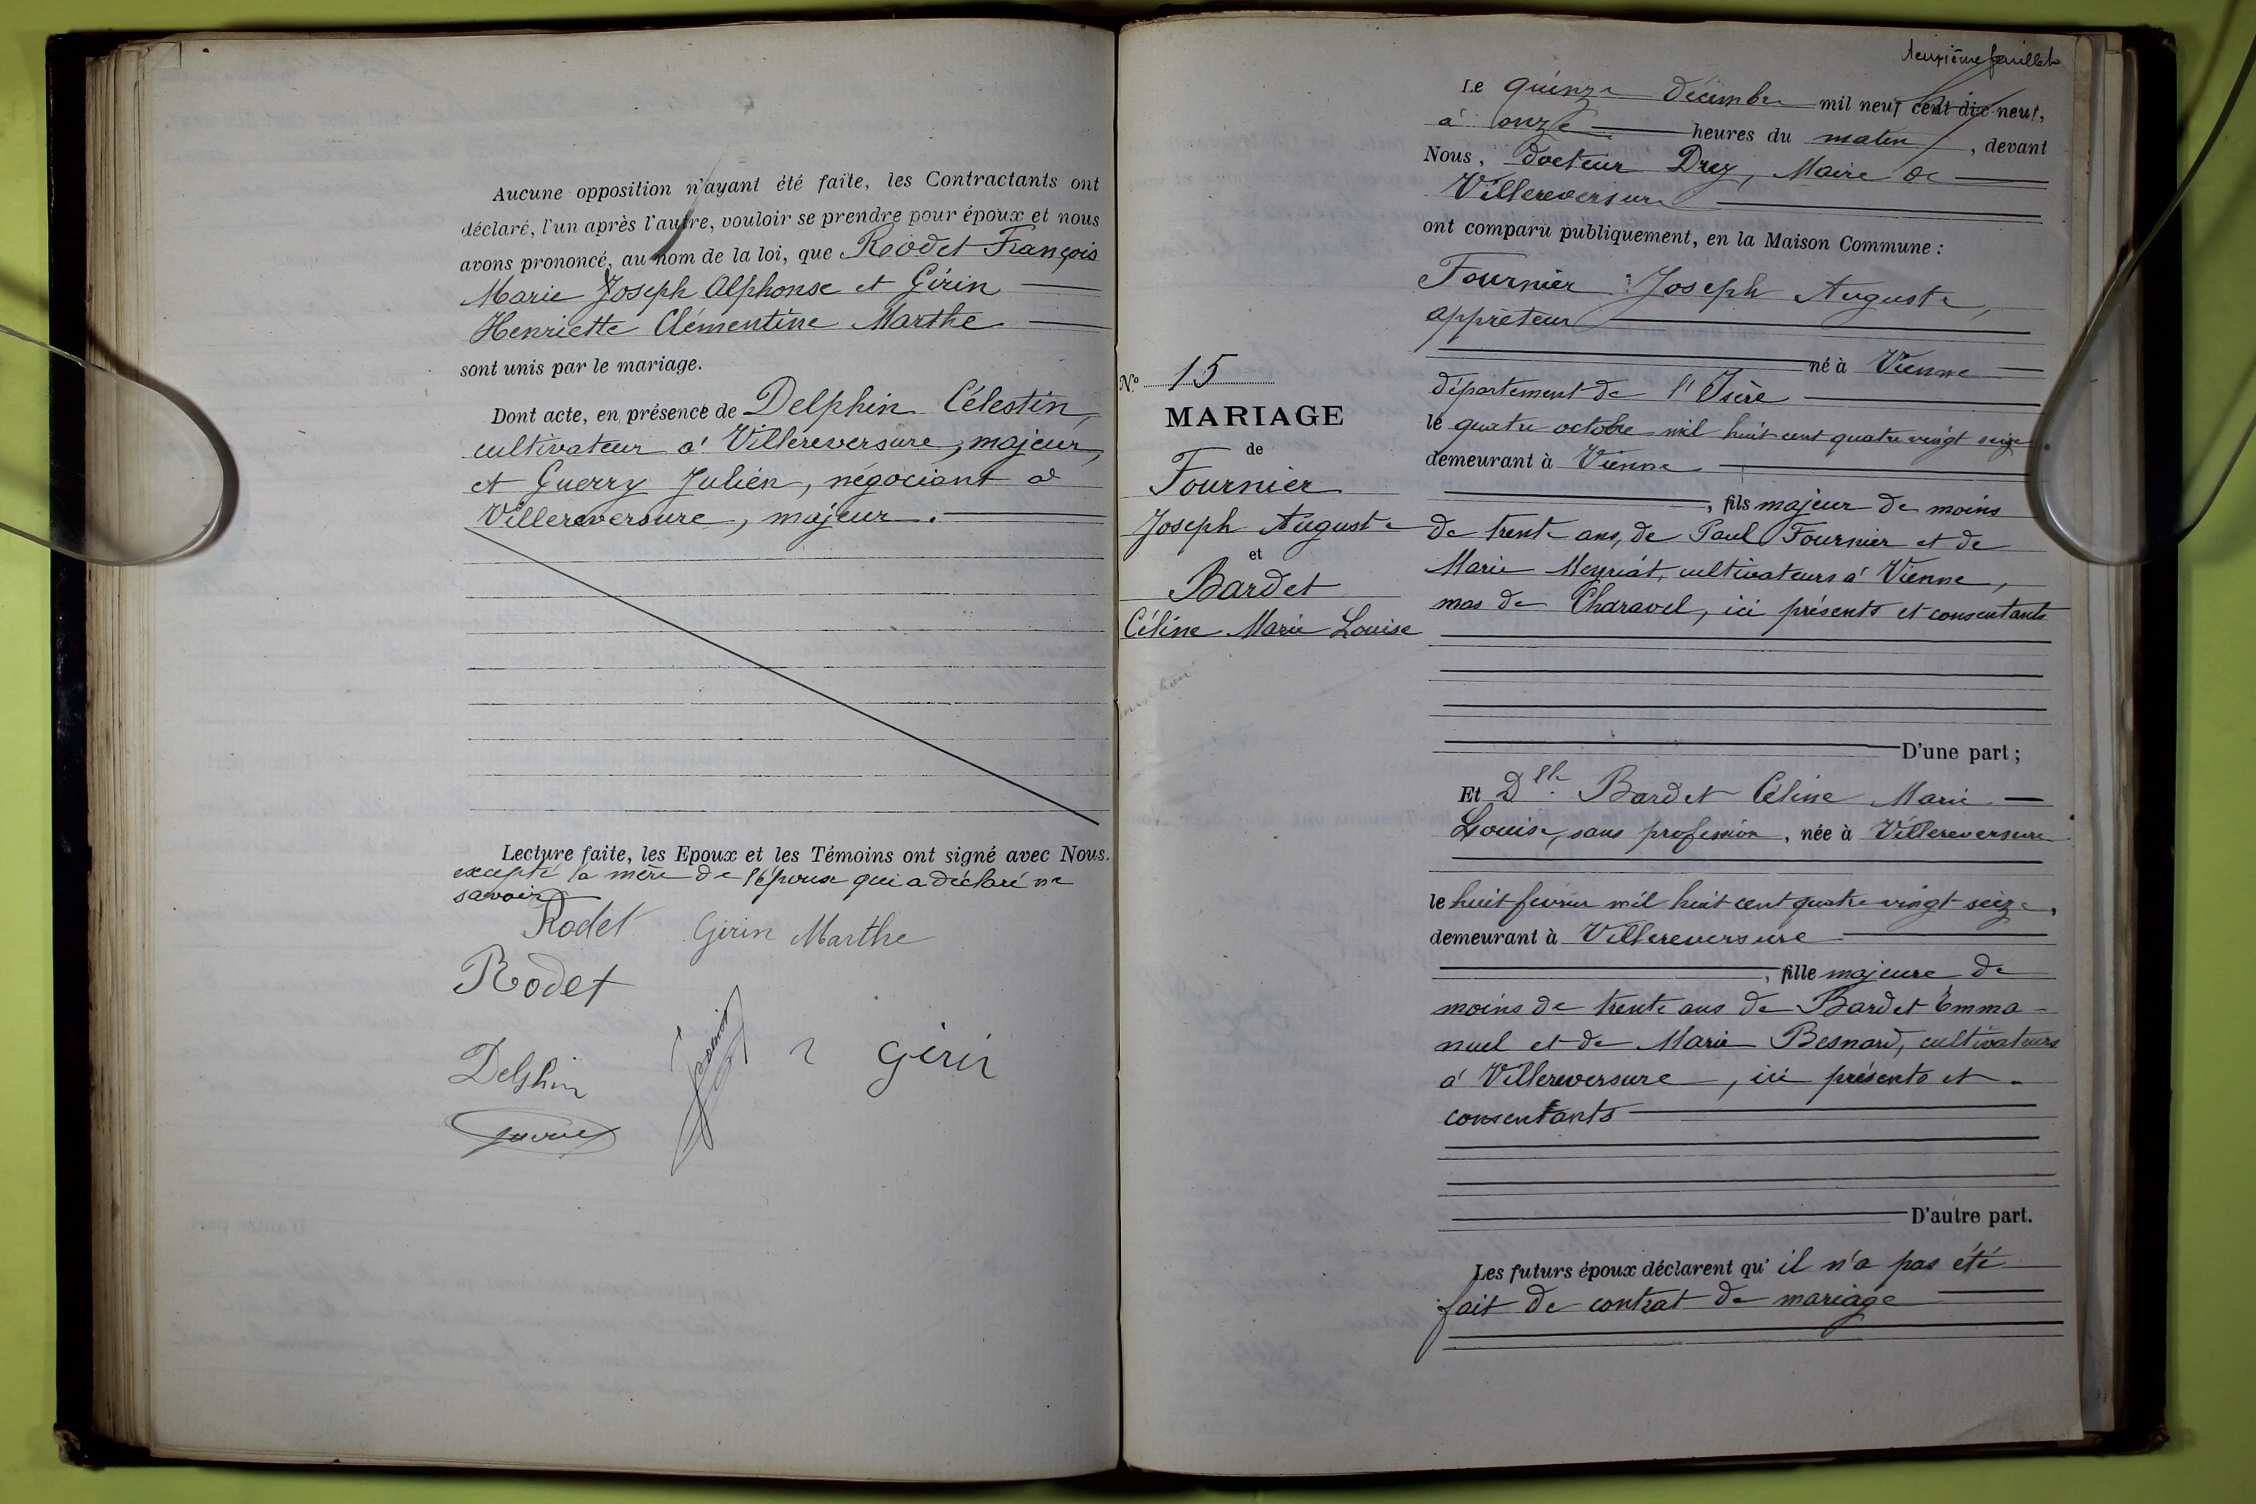 Aucune opposition n'ayant été faite, les Contractants ont
déclaré, l'un après l'autre, vouloir se prendre pour époux et nous
avons prononcé, au nom de la loi, que Rodet François
Marie Joseph Alphonse et Girin
Henriette Clémentine Marthe
sont unis par le mariage.
Dont acte, en présence de Delphin Célestin,
cultivateur à Villereversure, majeur,
et Guerry Julien, négociant à
Villereversure, majeur.
Lecture faite, les Epoux et les Témoins ont signé avec Nous.
excepté la mère de l'épouse qui a déclaré ne
savoir
Rodet Girin Marthe
Rodet
Girin
Delphin
deuxième feuillet
Le quinze décembre mil neuf cent dix-neuf,
à onze heures du matin, devant
Nous, Docteur Drez, Maire de
Villereversure
ont comparu publiquement, en la Maison Commune :
Fournier Joseph Auguste,
apprêteur
né à Vienne
département de l'Isère
le quatre octobre mil huit cent quatre vingt seize
demeurant à Vienne
, fils majeur de moins
de trente ans, de Paul Fournier et de
Marie Meyriat, cultivateurs à Vienne,
mas de Charavel, ici présents et consentants
D'une part ;
No 15
MARIAGE
de
Fournier
Joseph Auguste
et
Bardet
Céline Marie Louise
Et Dlle. Bardet Céline Marie
Louise, sans profession, née à Villereversure
le huit février mil huit cent quatre vingt seize,
demeurant à Villereversure
, fille majeure de
moins de trente ans de Bardet Emma-
nuel et de Marie Besnard, cultivateurs
à Villereversure, ici présents et
consentants
D'autre part.
Les futurs époux déclarent qu'il n'a pas été
fait de contrat de mariage